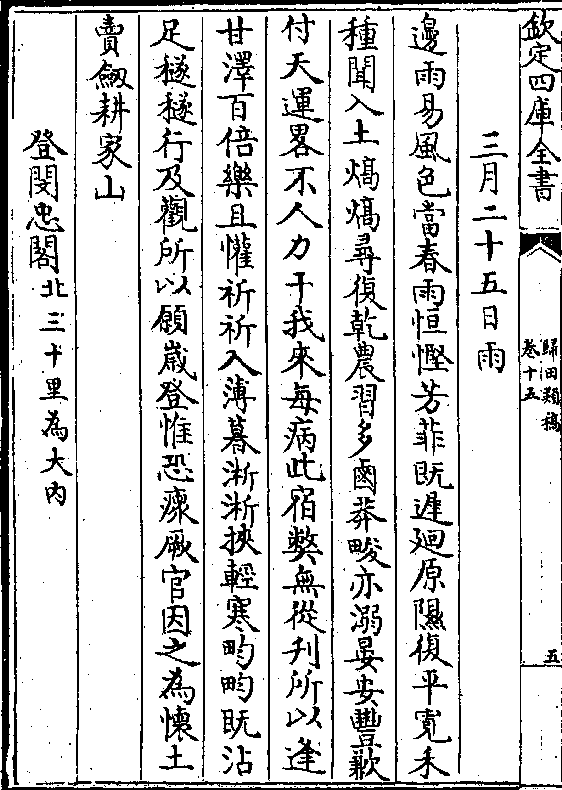 欽定四庫全書
歸田類稿
卷十五
五
三月二十五日雨
邊雨易風色當春雨恒慳芳菲既遲廻原隰復平寛禾
種聞入土熇熇尋復乾農習多鹵莽畯亦溺晏安豐歉
付天運畧不人力干我來每病此宿弊無從刋所以逢
甘澤百倍樂且懽祈祈入薄暮淅淅挾輕寒畇畇既沾
足穟穟行及觀所以願嵗登惟恐瘝厥官因之為懷土
賣劔耕家山
登閔忠閣北三十里為大内